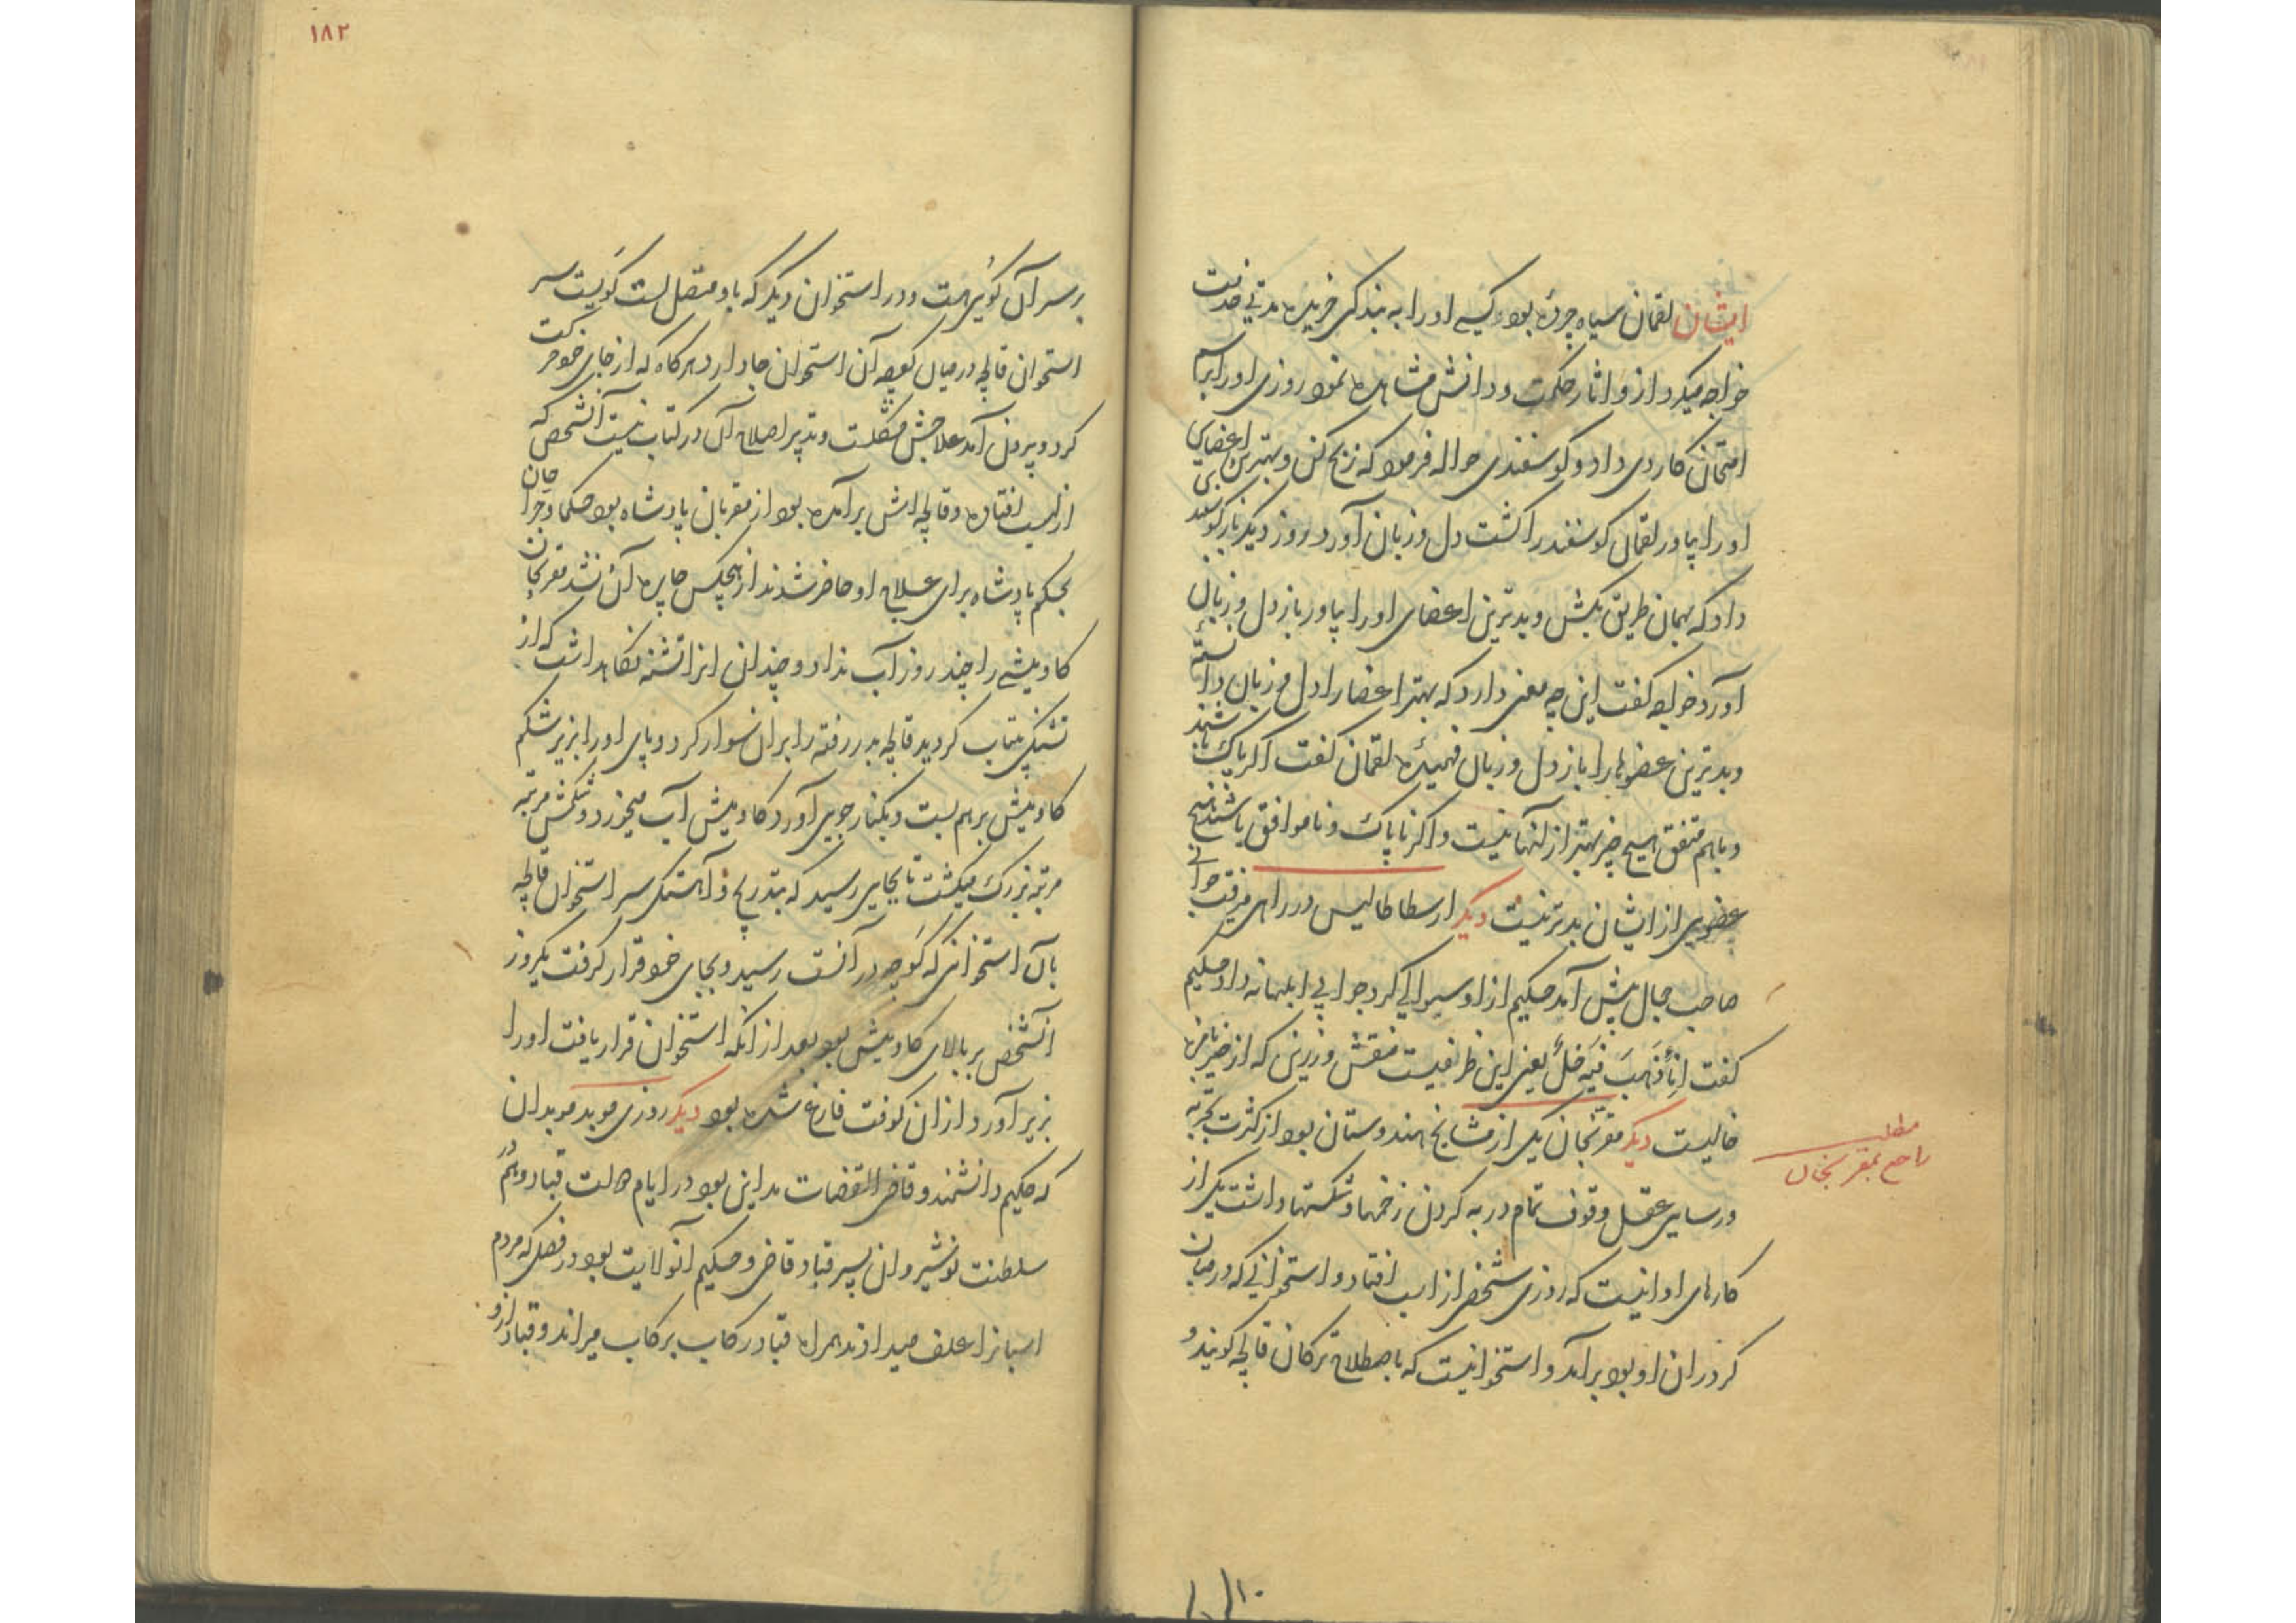 ایشان لقمان سیاه چرده بود کسی اورا به بندکی خریده مدتی خدمت
خواجه میکرد ازو اثار حکمت و دانش مشاهده نمود روزی اورا برسم
امتحان کاردی داد و کوسفندی حواله فرمود که ذبح کن و بهترین اعضای
اورا بیاور لقمان کوسفند را کشت دل و زبان آورد روز دیکر باز کوسفندی
داد که بهمان طریق بکش و بدترین اعضای اورا بیاور باز دل و زبان
آورد خواجه کفت این چه معنی دارد که بهتر اعضا را دل و زبان دانسته
و بدترین عضوها را باز دل و زبان فهمیده لقمان کفت اکر پاک باشند
و باهم متفق هیچ چیز بهتر از آنها نیست و اکر ناپاک و ناموافق باشند هیچ
عضوی از ایشان بدتر نیست دیکر ارسطاطالیس در راهی میرفت جوانی
صاحب جمال پیش آمد حکیم از او سوالی کرد جوابی ابلهانه داد حکیم
کفت اناءُ ذَهبَ فیهِ خلُّ یعنی این ظرفیست منقش و زرین که از چیز نافع
خالیست دیکر مقربخان یکی از مشایخ هندوستان بود از کثرت تجربه
و رسایی عقل وقوف تمام در به کردن زخمها و شکستها داشت یکی از
کارهای او اینست که روزی شخصی از اسب افتاد و استخوانی که در میان
کرد ران او بود برآمد و استخوانیست که باصطلاح ترکان قالچه کویند و
مطلب
راجع بمقربخان
۱۸۲
بر سر آن کوی هست و در استخوان دیکر که باو متصل است کویست سر
استخوان قالچه در میان کوچه آن استخوان جا دارد هرکاه که از جای خود حرکت
کرد و بیرون آمد علاجش مشکلست و تدبیر اصلاح آن در کتاب نیست آنشخص که
از اسب افتاده و قالچه اش برآمده بود از مقربان پادشاه بود حکما و جراحان
بحکم پادشاه برای علاج او حاضر شدند از هیچکس چاره آن نشد مقربخان
کاومیشی را چند روز آب نداد و چندان انرا تشنه نکاهداشت که از
تشنکی بیتاب کردید قالچه بدر رفته را بران سوار کرد و پای اورا بزیر شکم
کاومیش برهم بست و بکنار جویی آورد کاومیش آب میخورد و شکمش مرتبه
مرتبه بزرک میکشت تا بجایی رسید که بتدریج و آهستکی سر استخوان قالچه
بآن استخوانی که کوچه در آنست رسید و بجای خود قرار کرفت یکروز
آنشخص بر بالای کاومیش بود بعد از انکه استخوان قرار یافت اورا
بزیر آورد و ازان کوفت فارغ شده بود دیکر روزی موبد موبدان
که حکیم دانشمند و قاضی القضات مداین بود در ایام دولت قباد و هم در
سلطنت نوشیروان پسر قباد قاضی و حکیم آنولایت بود در فصلی که مردم
اسبانرا علف میدادند همراه قباد رکاب بر کاب میراند و قباد ازو